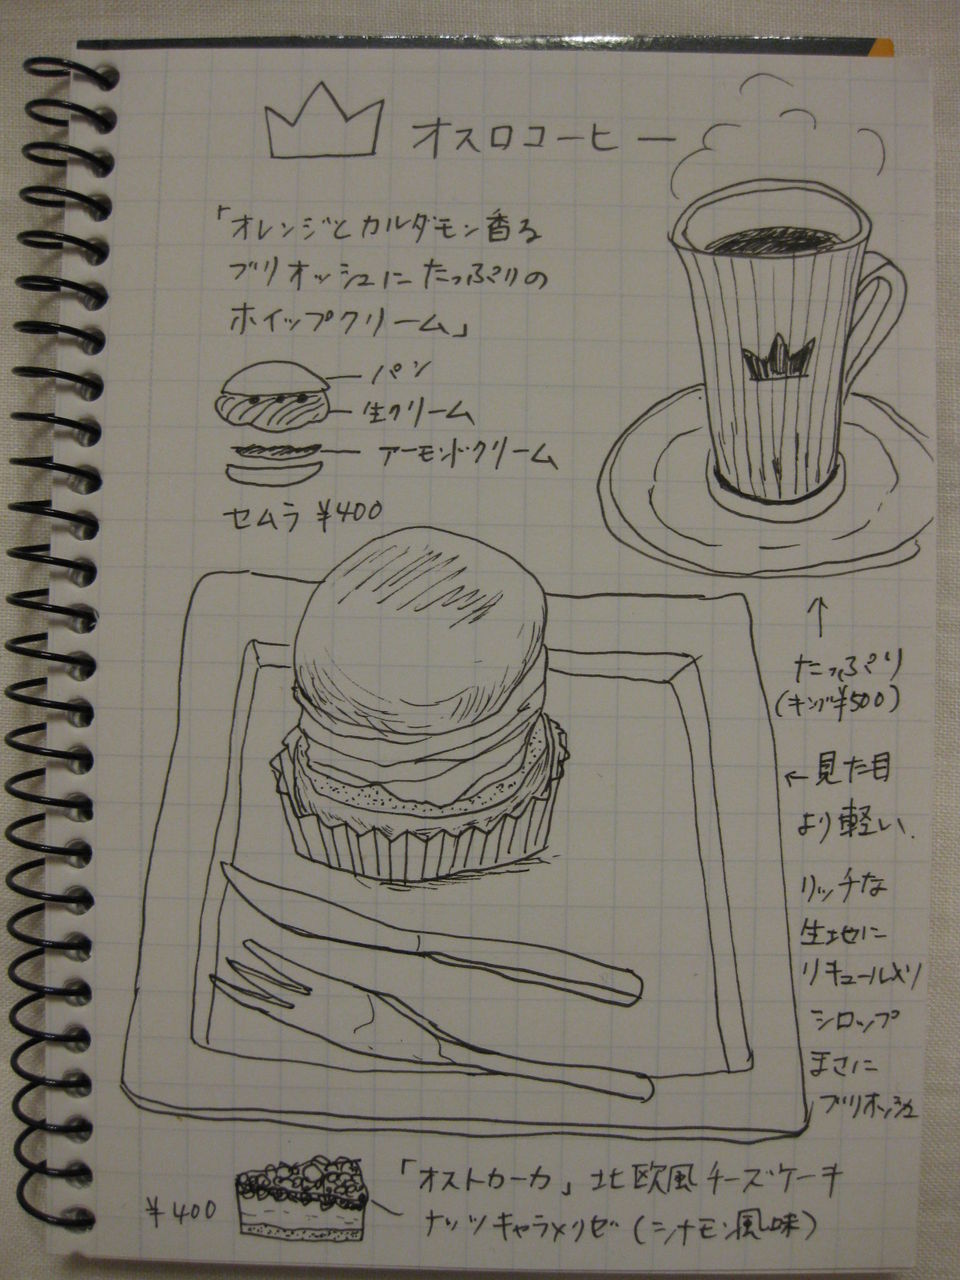 オスロコーヒー
「オレンジとカルダモン香る
ブリオッシュにたっぷりの
ホイップクリーム」
パン
生クリーム
アーモンドクリーム
セムラ ¥400
↑
たっぷり
(キング¥500)
← 見た目
より軽い、
リッチな
生地に
リキュール入り
シロップ
まさに
ブリオッシュ
¥400
「オストカーカ」北欧風チーズケーキ
ナッツキャラメリゼ(シナモン風味)